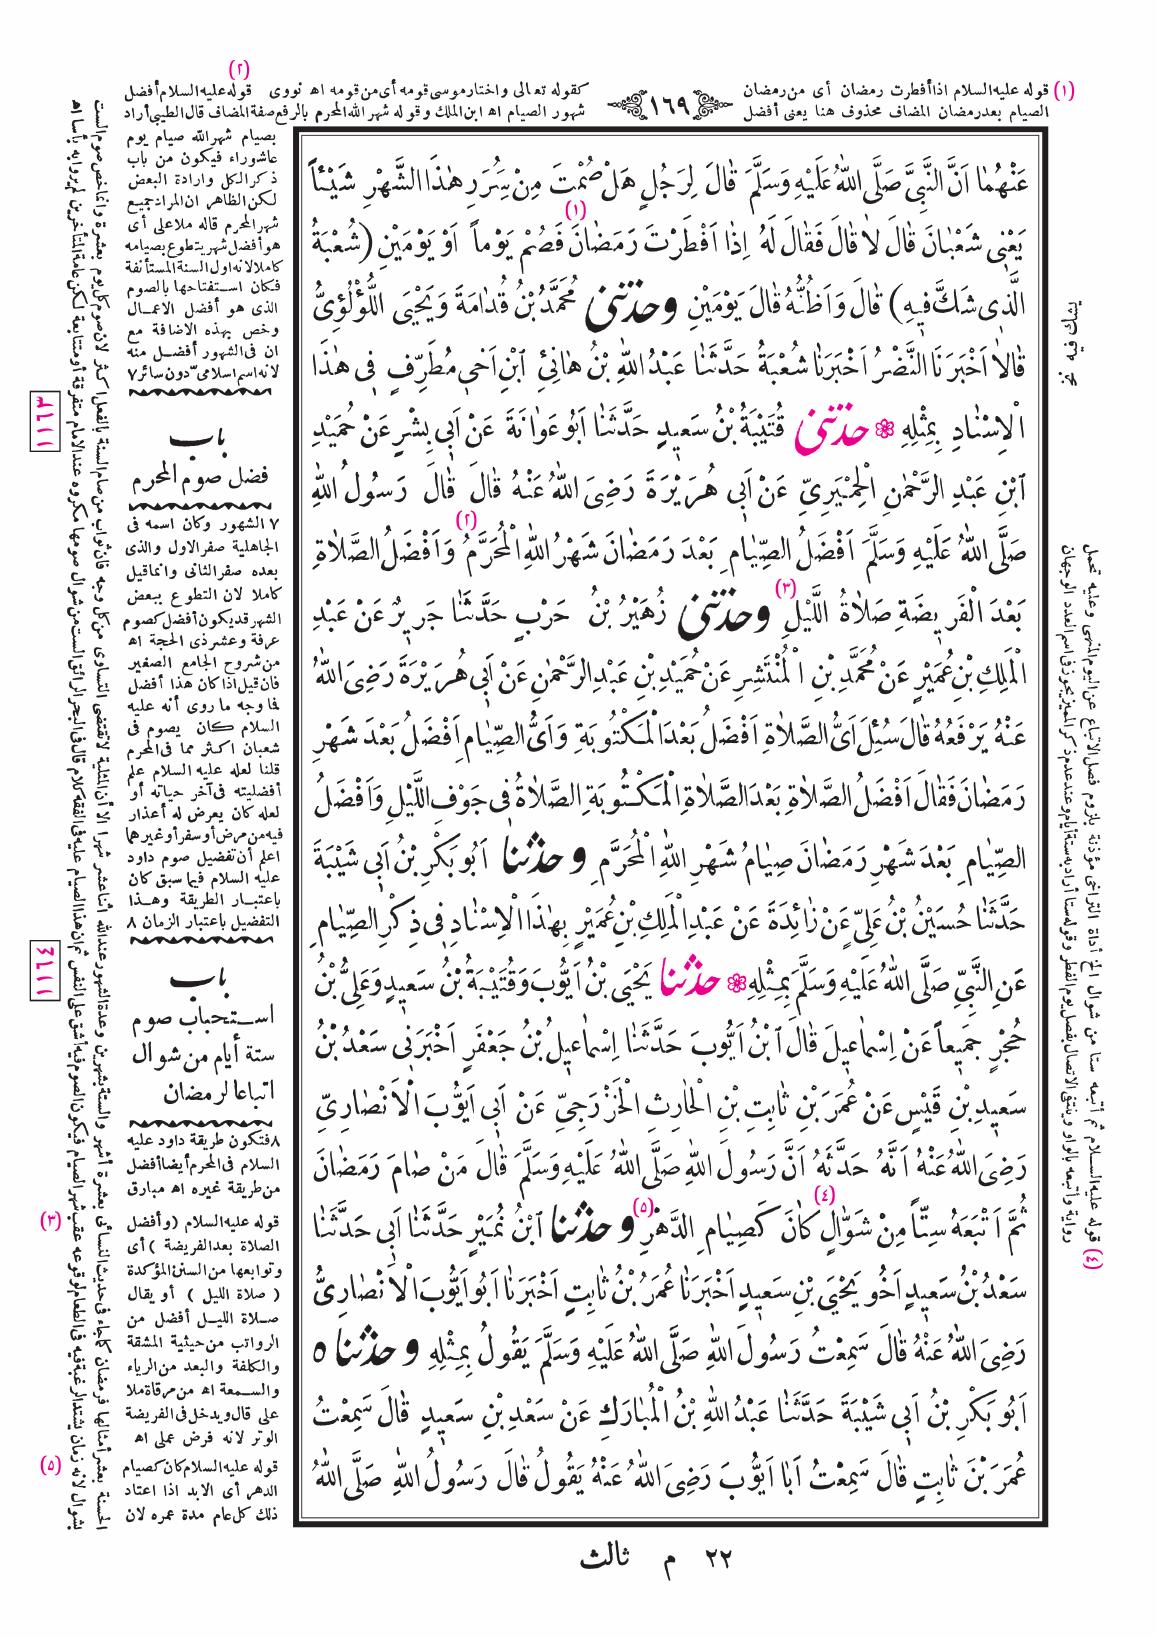 (٢)
(١) قوله عليه السلام اذا أفطرت رمضان أى من رمضان
﴿١٦٩﴾
كقوله تعالى واختار موسى قومه أى من قومه اه نووى قوله عليه السلام أفضل
الصيام بعد رمضان المضاف محذوف هنا يعنى أفضل
شهور الصيام اه ابن الملك وقوله شهر الله المحرم بالرفع صفة المضاف قال الطيبى أراد
عَنْهُمَا اَنَّ النَّبِيَّ صَلَّى اللهُ عَلَيْهِ وَسَلَّمَ قَالَ لِرَجُلٍ هَلْ صُمْتَ مِنْ سَِرَرِ هٰذَا الشَّهْرِ شَيْئاً
يَعْنِى شَعْبَانَ قَالَ لَا قَالَ فَقَالَ لَهُ اِذَا اَفْطَرْتَ رَمَضَانَ (١) فَصُمْ يَوْماً اَوْ يَوْمَيْنِ (شُعْبَةُ
الَّذِى شَكَّ فِيهِ) قَالَ وَاَظُنُّهُ قَالَ يَوْمَيْنِ وحدثنى مُحَمَّدُ بْنُ قُدَامَةَ وَيَحْيَى اللُّؤْلُؤِىُّ
قَالَا اَخْبَرَنَا النَّضْرُ اَخْبَرَنَا شُعْبَةُ حَدَّثَنَا عَبْدُ اللهِ بْنُ هَانِئِ ابْنِ اَخِى مُطَرِّفٍ فِى هٰذَا
الْاِسْنَادِ بِمِثْلِهِ ❁ حدثنى قُتَيْبَةُ بْنُ سَعِيدٍ حَدَّثَنَا اَبُو عَوَانَةَ عَنْ اَبِى بِشْرٍ عَنْ حُمَيْدِ
ابْنِ عَبْدِ الرَّحْمٰنِ الْحِمْيَرِيِّ عَنْ اَبِى هُرَيْرَةَ رَضِىَ اللهُ عَنْهُ قَالَ قَالَ رَسُولُ اللهِ
صَلَّى اللهُ عَلَيْهِ وَسَلَّمَ اَفْضَلُ الصِّيَامِ بَعْدَ رَمَضَانَ شَهْرُ اللهِ (٢) الْمُحَرَّمُ وَاَفْضَلُ الصَّلَاةِ
بَعْدَ الْفَرِيضَةِ صَلَاةُ اللَّيْلِ (٣) وحدثنى زُهَيْرُ بْنُ حَرْبٍ حَدَّثَنَا جَرِيرٌ عَنْ عَبْدِ
الْمَلِكِ بْنِ عُمَيْرٍ عَنْ مُحَمَّدِ بْنِ الْمُنْتَشِرِ عَنْ حُمَيْدِ بْنِ عَبْدِ الرَّحْمٰنِ عَنْ اَبِى هُرَيْرَةَ رَضِىَ اللهُ
عَنْهُ يَرْفَعُهُ قَالَ سُئِلَ اَىُّ الصَّلَاةِ اَفْضَلُ بَعْدَ الْمَكْتُوبَةِ وَاَىُّ الصِّيَامِ اَفْضَلُ بَعْدَ شَهْرِ
رَمَضَانَ فَقَالَ اَفْضَلُ الصَّلَاةِ بَعْدَ الصَّلَاةِ الْمَكْتُوبَةِ الصَّلَاةُ فِى جَوْفِ اللَّيْلِ وَاَفْضَلُ
الصِّيَامِ بَعْدَ شَهْرِ رَمَضَانَ صِيَامُ شَهْرِ اللهِ الْمُحَرَّمِ وحدثنا اَبُو بَكْرِ بْنُ اَبِى شَيْبَةَ
حَدَّثَنَا حُسَيْنُ بْنُ عَلِيٍّ عَنْ زَائِدَةَ عَنْ عَبْدِ الْمَلِكِ بْنِ عُمَيْرٍ بِهٰذَا الْاِسْنَادِ فِى ذِكْرِ الصِّيَامِ
عَنِ النَّبِيِّ صَلَّى اللهُ عَلَيْهِ وَسَلَّمَ بِمِثْلِهِ ❁ حدثنا يَحْيَى بْنُ اَيُّوبَ وَقُتَيْبَةُ بْنُ سَعِيدٍ وَعَلِىُّ بْنُ
حُجْرٍ جَمِيعاً عَنْ اِسْمَاعِيلَ قَالَ ابْنُ اَيُّوبَ حَدَّثَنَا اِسْمَاعِيلُ بْنُ جَعْفَرٍ اَخْبَرَنِى سَعْدُ بْنُ
سَعِيدِ بْنِ قَيْسٍ عَنْ عُمَرَ بْنِ ثَابِتِ بْنِ الْحَارِثِ الْخَزْرَجِيِّ عَنْ اَبِى اَيُّوبَ الْاَنْصَارِيِّ
رَضِىَ اللهُ عَنْهُ اَنَّهُ حَدَّثَهُ اَنَّ رَسُولَ اللهِ صَلَّى اللهُ عَلَيْهِ وَسَلَّمَ قَالَ مَنْ صَامَ رَمَضَانَ
ثُمَّ اَتْبَعَهُ سِتّاً مِنْ شَوَّالٍ (٤) كَانَ كَصِيَامِ الدَّهْرِ (٥) وحدثنا ابْنُ نُمَيْرٍ حَدَّثَنَا اَبِى حَدَّثَنَا
سَعْدُ بْنُ سَعِيدٍ اَخُو يَحْيَى بْنِ سَعِيدٍ اَخْبَرَنَا عُمَرُ بْنُ ثَابِتٍ اَخْبَرَنَا اَبُو اَيُّوبَ الْاَنْصَارِىُّ
رَضِىَ اللهُ عَنْهُ قَالَ سَمِعْتُ رَسُولَ اللهِ صَلَّى اللهُ عَلَيْهِ وَسَلَّمَ يَقُولُ بِمِثْلِهِ وحدثنا ٥
اَبُو بَكْرِ بْنُ اَبِى شَيْبَةَ حَدَّثَنَا عَبْدُ اللهِ بْنُ الْمُبَارَكِ عَنْ سَعْدِ بْنِ سَعِيدٍ قَالَ سَمِعْتُ
عُمَرَ بْنَ ثَابِتٍ قَالَ سَمِعْتُ اَبَا اَيُّوبَ رَضِىَ اللهُ عَنْهُ يَقُولُ قَالَ رَسُولُ اللهِ صَلَّى اللهُ
بصيام شهر الله صيام يوم
عاشوراء فيكون من باب
ذكر الكل وارادة البعض
لكن الظاهر ان المراد جميع
شهر المحرم قاله ملا على أى
هو أفضل شهر يتطوع بصيامه
كاملا لانه اول السنة المستأنفة
فكان استفتاحها بالصوم
الذى هو أفضل الاعمال
وخص بهذه الاضافة مع
ان فى الشهور أفضل منه
لانه اسم اسلامى دون سائر ٧
باب
فضل صوم المحرم
٧ الشهور وكان اسمه فى
الجاهلية صفر الاول والذى
بعده صفر الثانى وانما قيل
كاملا لان التطوع ببعض
الشهر قد يكون أفضل كصوم
عرفة وعشر ذى الحجة اه
من شروح الجامع الصغير
فان قيل اذا كان هذا أفضل
فما وجه ما روى أنه عليه
السلام كان يصوم فى
شعبان اكثر مما فى المحرم
قلنا لعله عليه السلام علم
أفضليته فى آخر حياته أو
لعله كان يعرض له أعذار
فيه من مرض أو سفر أو غيرهما
اعلم أن تفضيل صوم داود
عليه السلام فيما سبق كان
باعتبار الطريقة وهذا
التفضيل باعتبار الزمان ٨
باب
استحباب صوم
ستة أيام من شوال
اتباعا لرمضان
٨ فتكون طريقة داود عليه
السلام فى المحرم أيضا أفضل
من طريقة غيره اه مبارق
(٣) قوله عليه السلام (وأفضل
الصلاة بعد الفريضة) أى
وتوابعها من السنن المؤكدة
(صلاة الليل) أو يقال
صلاة الليل أفضل من
الرواتب من حيثية المشقة
والكلفة والبعد من الرياء
والسمعة اه من مرقاة ملا
على قال ويدخل فى الفريضة
الوتر لانه فرض عملى اه
(٥) قوله عليه السلام كان كصيام
الدهر أى الابد اذا اعتاد
ذلك كل عام مدة عمره لان
(٤) قوله عليه السلام ثم أتبعه ستا من شوال الخ أداة التراخى مؤذنة بلزوم فصل الاتباع عن اليوم المنهى وعليه تحمل
رواية وأتبعه بالواو وينتفى الاتصال بفصل يوم الفطر وقوله ستا أراد به ستة أيام وعند عدم ذكر المميز يجوز فى اسم العدد الوجهان
٢٢ م ثالث